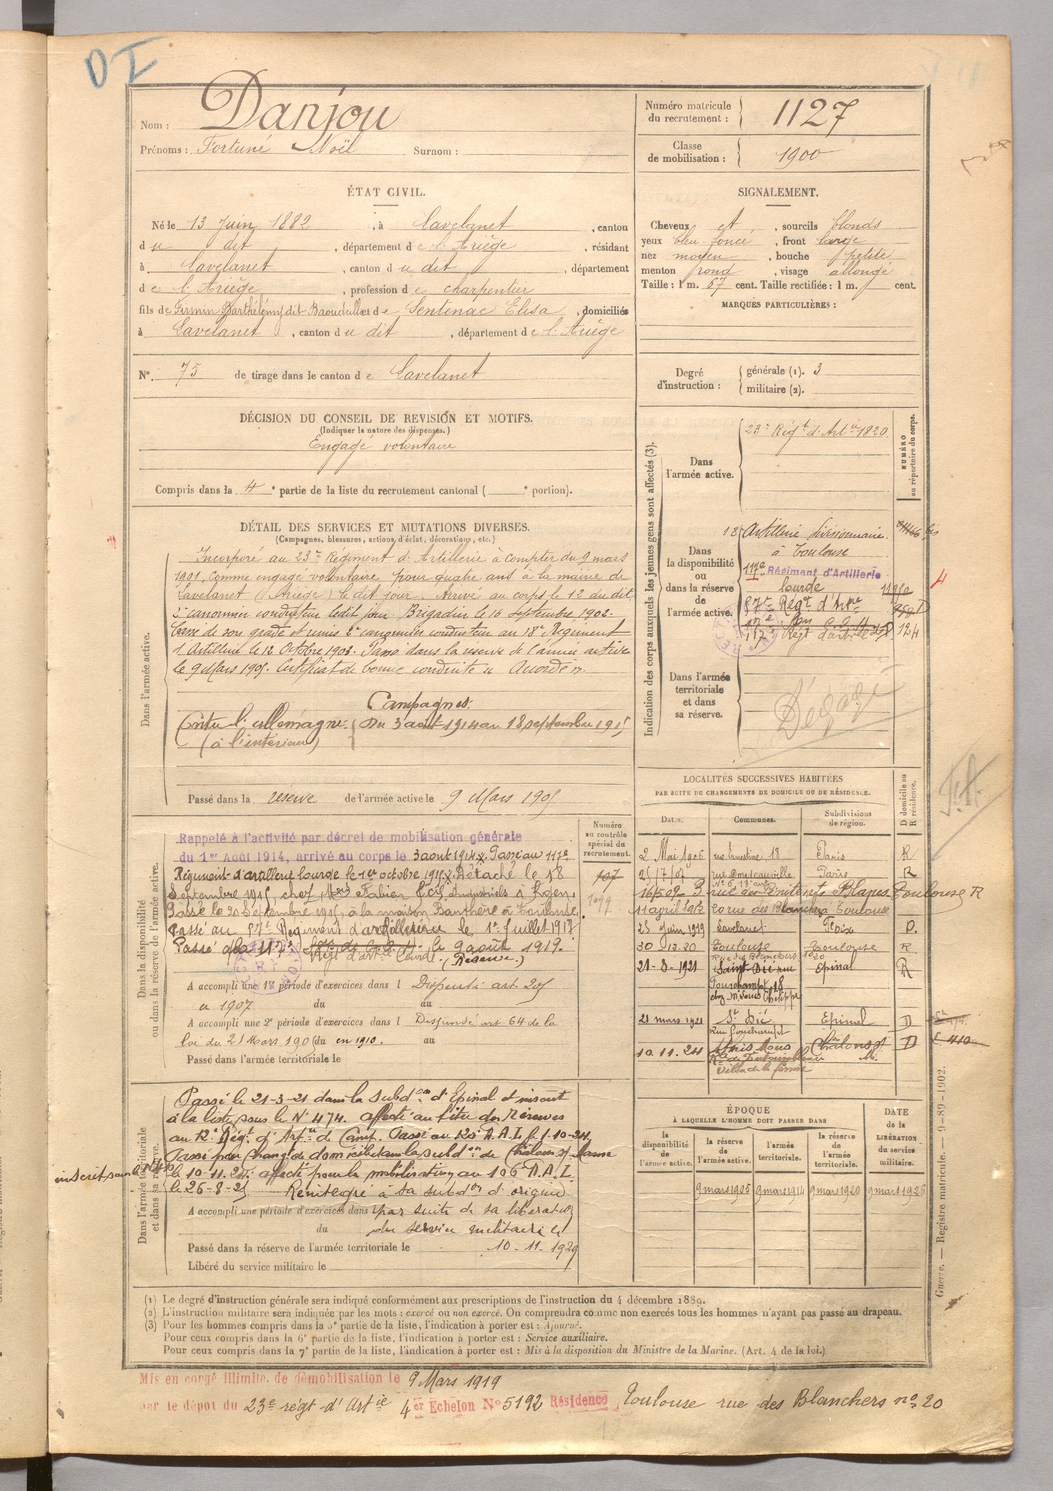 DI
Nom : Danjou
Prénoms : Fortuné Noël Surnom :
Numéro matricule du recrutement : 1127
Classe de mobilisation : 1900
ÉTAT CIVIL.
Né le 13 Juin 1882, à Lavelanet, canton
du dit, département de l'Ariège, résidant
à Lavelanet, canton du dit, département
de l'Ariège, profession de charpentier
fils de Firmin Barthélémy dit et de Sentenac Elisa, domiciliés
à Lavelanet, canton du dit, département de l'Ariège
N° 75 de tirage dans le canton de Lavelanet
SIGNALEMENT.
Cheveux et, sourcils blonds
yeux bleu foncé, front large
nez moyen, bouche petite
menton rond, visage allongé
Taille : 1 m. 67 cent. Taille rectifiée : 1 m. cent.
MARQUES PARTICULIÈRES :
Degré d'instruction : générale (1). 3
militaire (2).
DÉCISION DU CONSEIL DE REVISION ET MOTIFS.
(Indiquer la nature des dispenses.)
Engagé volontaire
Compris dans la 4e partie de la liste du recrutement cantonal ( e portion).
DÉTAIL DES SERVICES ET MUTATIONS DIVERSES.
(Campagnes, blessures, actions d'éclat, décorations, etc.)
Dans l'armée active.
Incorporé au 23e Régiment d'Artillerie à compter du 9 mars
1901, comme engagé volontaire, pour quatre ans à la mairie de
Lavelanet (Ariège) le dit jour. Arrivé au corps le 12 du dit.
2e canonnier conducteur ledit jour. Brigadier le 16 septembre 1902.
Cassé de son grade et remis 2e canonnier conducteur au 18e Régiment
d'Artillerie le 12 Octobre 1903. Passé dans la réserve de l'armée active
le 9 Mars 1905. Certificat de bonne conduite Accordé
Campagnes.
Contre l'Allemagne. Du 3 août 1914 au 18 septembre 1915
(à l'intérieur)
Passé dans la réserve de l'armée active le 9 Mars 1905
Indication des corps auxquels les jeunes gens sont affectés (3).
NUMÉRO au répertoire du corps.
Dans l'armée active.
23e Régt d'Artie 1820
Dans la disponibilité ou dans la réserve de l'armée active.
18 Artillerie divisionnaire
à Toulouse
117e Régiment d'Artillerie
lourde
57e Régt d'Artie
117e Régt d'art 124
4
Dans l'armée territoriale et dans sa réserve.
Dégagé
Dans la disponibilité ou dans la réserve de l'armée active.
Numéro au contrôle spécial du recrutement.
Rappelé à l'activité par décret de mobilisation générale
du 1er Août 1914, arrivé au corps le 3 août 1914. Passé au 117e
Régiment d'artillerie lourde le 1er octobre 1915. Détaché le 18
Septembre 1915, chez Mr Fabien à Agen
Passé le 20 Septembre 1915, à la maison Barthère à Toulouse
Passé au 57e Régiment d'artillerie le 1er Juillet 1917
Passé au 117e Régt d'art. Lourde le 9 août 1919.
(Réserve.)
A accompli une 1re période d'exercices dans l Dispensé art 205
en 1907 du au
A accompli une 2e période d'exercices dans l Dispensé art 64 de la
loi du 21 Mars 1905 du en 1910. au
Passé dans l'armée territoriale le
LOCALITÉS SUCCESSIVES HABITÉES
PAR SUITE DE CHANGEMENTS DE DOMICILE OU DE RÉSIDENCE.
Dates. Communes. Subdivisions de région. D domicile ou R résidence.
2 Mai 1906 18 Paris R
25/7/07 Paris R
Blancs Toulouse R
11 avril 1912 20 rue des Blanchers Toulouse
23 Juin 1919 Lavelanet Foix D.
30 12.20 Toulouse Toulouse R
Rue des Blanchers 20
21-3-1921 Saint Dié rue Epinal R
21 mars 1921 St Dié Epinal D
10.11.24 Chalons s/ M. D
Dans l'armée territoriale et dans sa réserve.
Passé le 21-3-21 dans la subdon d'Epinal et inscrit
à la liste sous le N° 474. affecté au titre des Réserves
au R. Régt d'Artie de Camp. Passé au 120 R.A.L. le 1-10-24.
Passé par chang. de domicile dans la subdon de Chalons s/ Marne
le 10-11-24. affecté pour la mobilisation au 106 R.A.L.
le 26-8-25 Réintegré à sa subdon d'origine
A accompli une période d'exercices dans par suite de sa libération
du du service militaire le
Passé dans la réserve de l'armée territoriale le 10-11-1929
Libéré du service militaire le
ÉPOQUE
À LAQUELLE L'HOMME DOIT PASSER DANS
DATE DE LA LIBÉRATION du service militaire.
la disponibilité de l'armée active.
la réserve de l'armée active.
l'armée territoriale.
la réserve de l'armée territoriale.
9 mars 1905 9 mars 1914 9 mars 1920 9 mars 1926
Guerre. — Registre matricule. — 9-89-1902.
(1) Le degré d'instruction générale sera indiqué conformément aux prescriptions de l'instruction du 4 décembre 1889.
(2) L'instruction militaire sera indiquée par les mots : exercé ou non exercé. On comprendra comme non exercés tous les hommes n'ayant pas passé au drapeau.
(3) Pour les hommes compris dans la 5e partie de la liste, l'indication à porter est : Ajourné.
Pour ceux compris dans la 6e partie de la liste, l'indication à porter est : Service auxiliaire.
Pour ceux compris dans la 7e partie de la liste, l'indication à porter est : Mis à la disposition du Ministre de la Marine. (Art. 4 de la loi.)
Mis en congé illimité de démobilisation le 9 Mars 1919
par le dépôt du 23e régt d'Artie 4er Echelon N° 5192 Résidence Toulouse rue des Blanchers n° 20